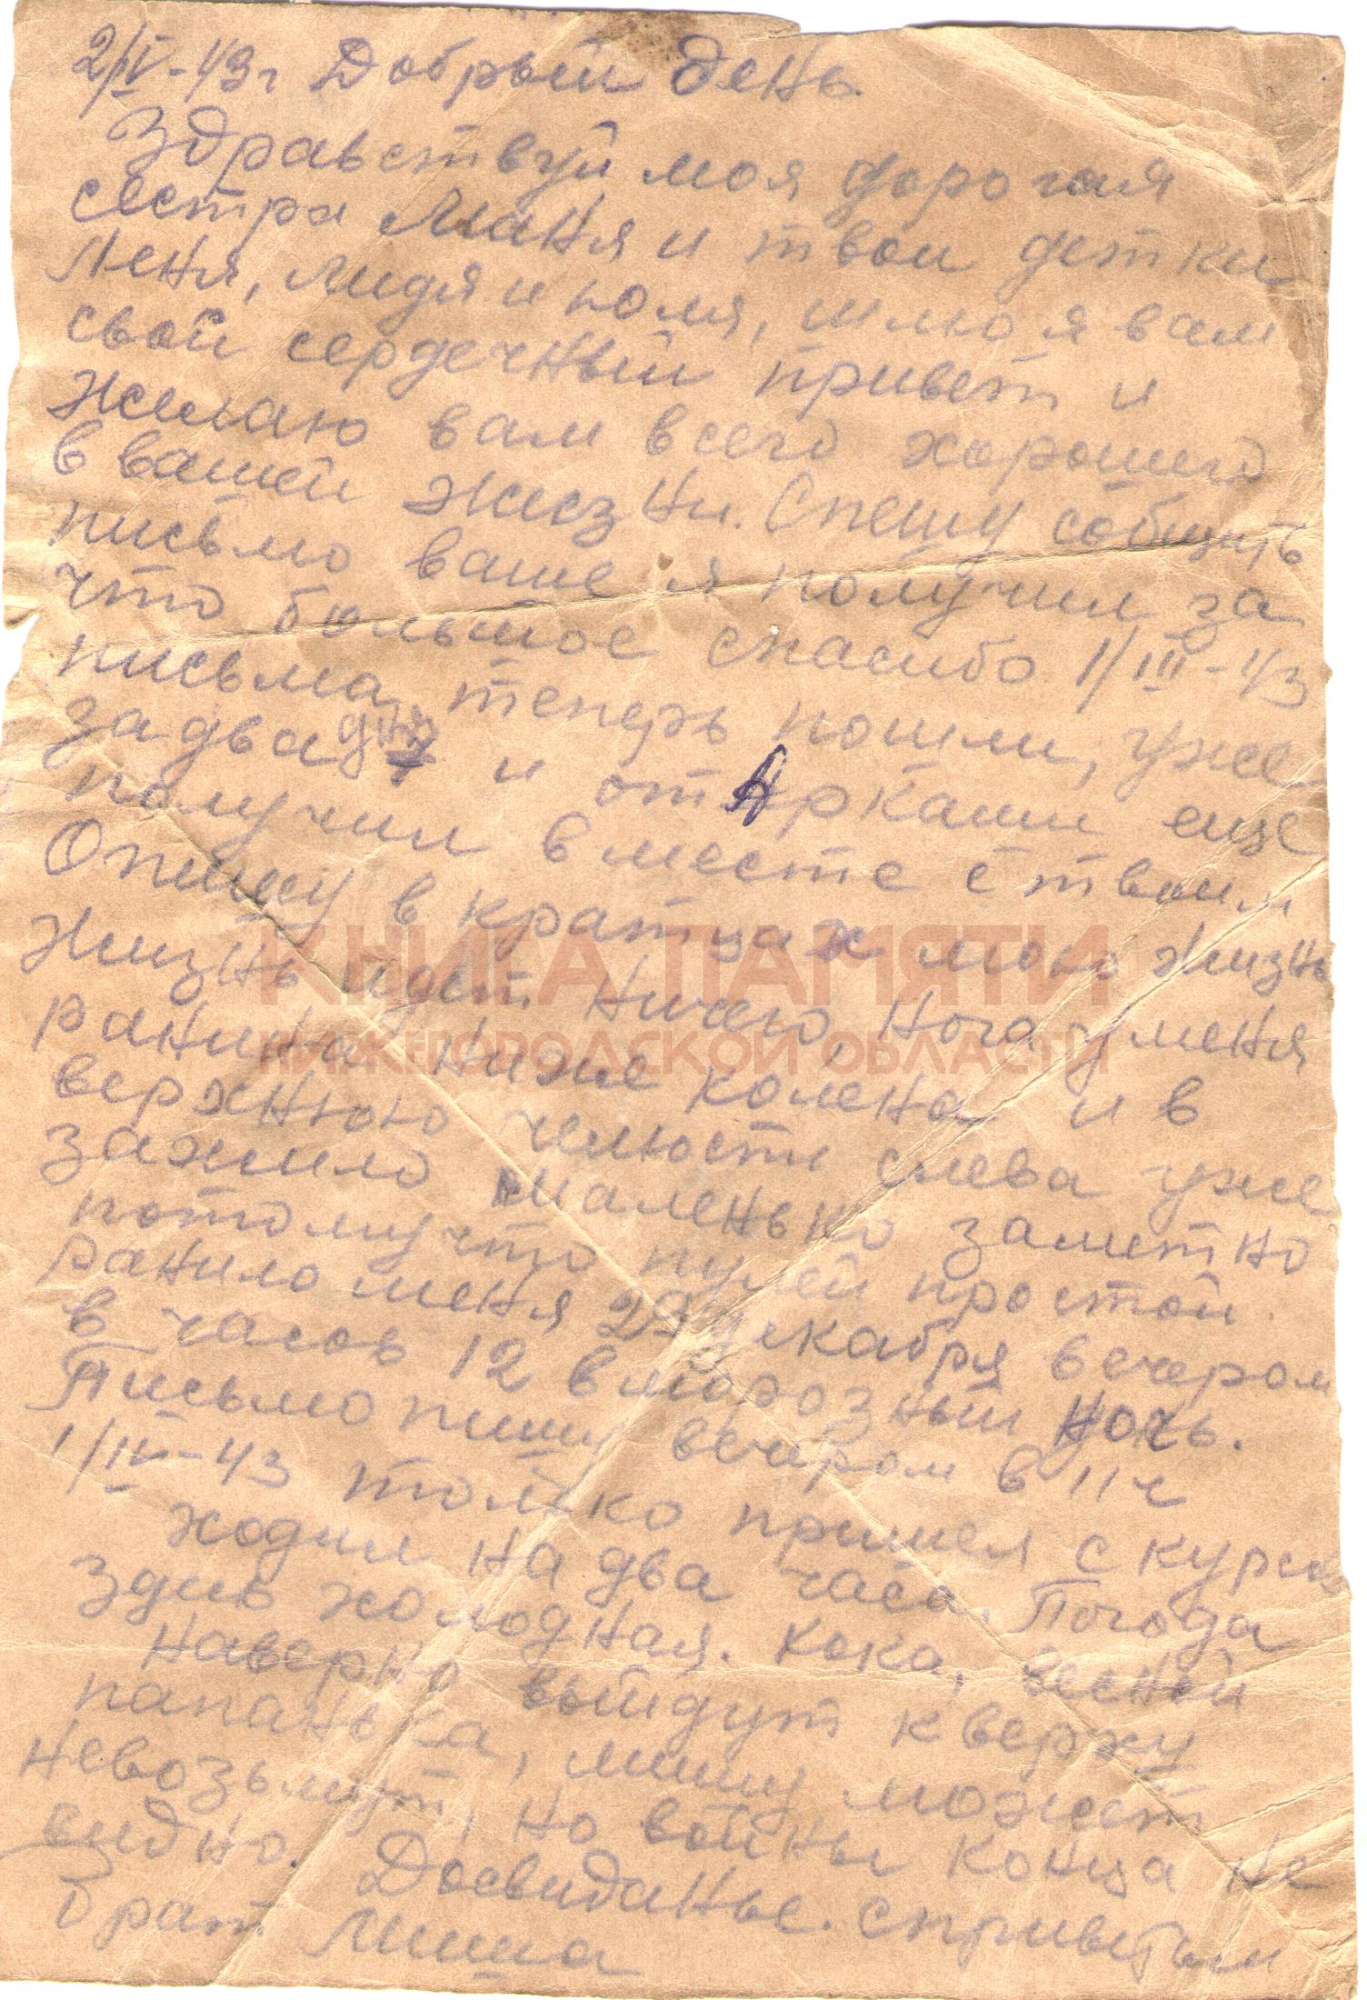 2/IV-43г Добрый день
Здравствуй моя дорогая
сестра Маня и твои детки
Леня, Лидя и Коля, шлю я вам
свой сердечный привет и
желаю вам всего хорошего
в вашей жизни. Спешу собщить
письмо ваше я получил за
что большое спасибо 1/III-43
письма, теперь пошли, уже
за два дня и от Аркаши еще
получил вместе с твоим
Опишу в кратцах мою жизнь
Жизнь идет ничего, нога у меня
ранина ниже колена и в
верхнюю челюсти слева уже
зажило маленько заметно
потому что пулей простой.
Ранило меня 29 декабря вечером
в часов 12 в морозный ночь.
Письмо пишу вечером в 11 ч
1/IV-43 только пришел с курса
ходил на два часа. Погода
здись холодная. Кока, весной
наверно выйдут кверху
папанька, мишу может
невозьмут, но войны конца не
видно. Досвиданье. с приветом
Брат Миша
КНИГА ПАМЯТИ
НИЖЕГОРОДСКОЙ ОБЛАСТИ